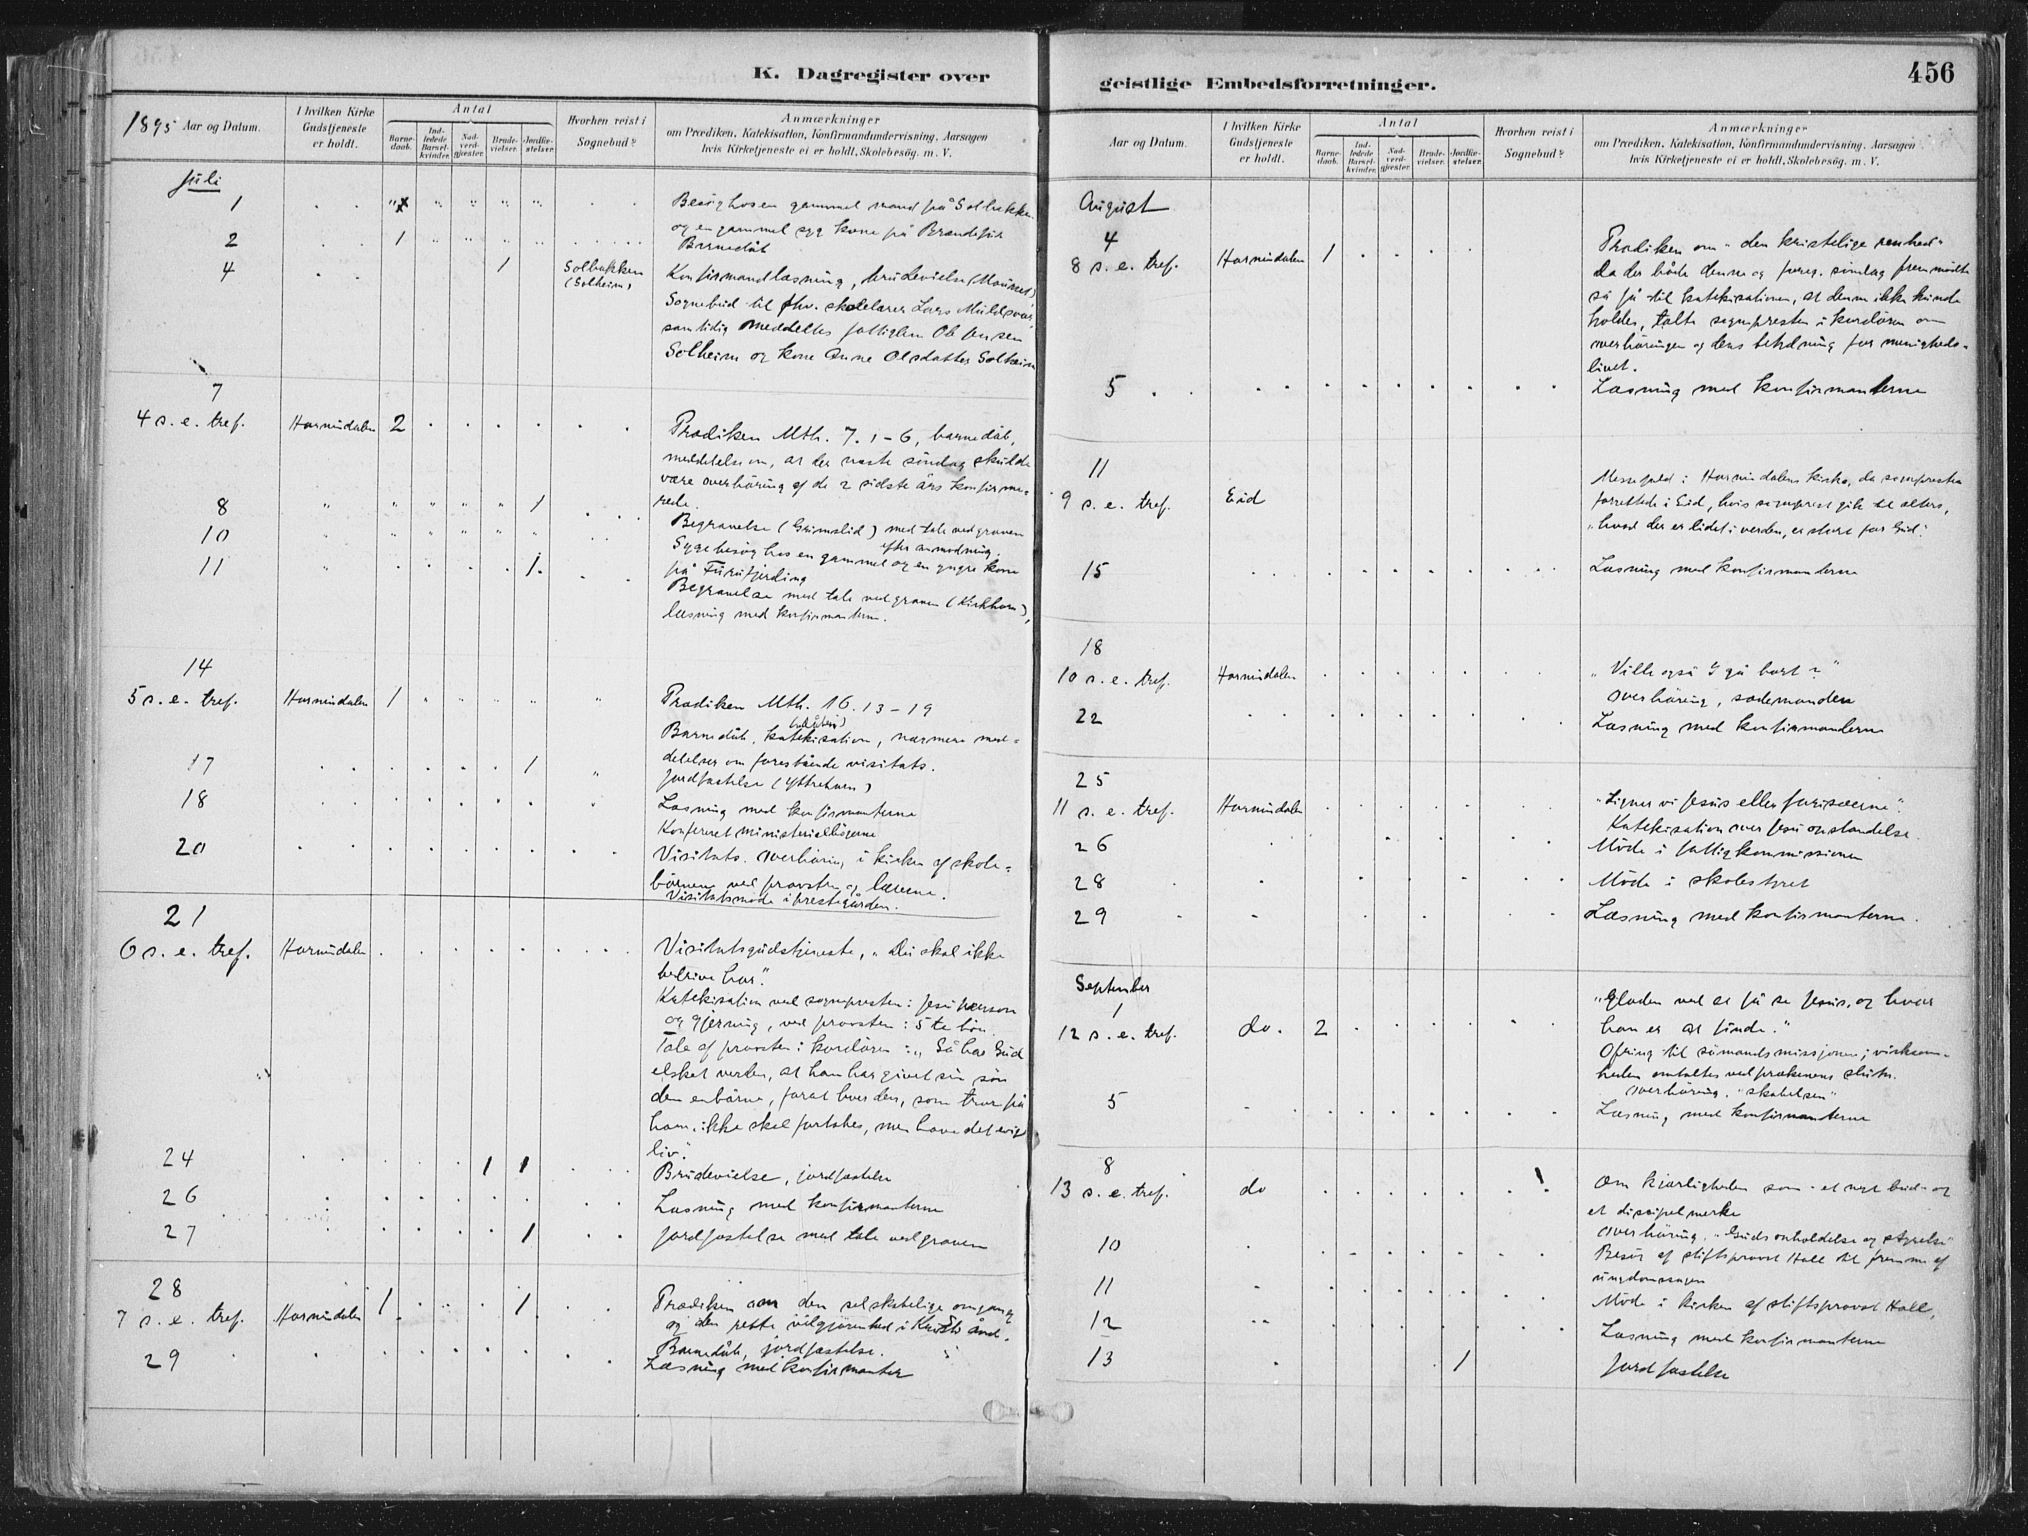 K. Dagregister over
1895 Aar og Datum.
I hvilken Kirke Gudstjeneste er holdt.
Antal
Barne-daab.
Ind-ledede Barsel-kvinder.
Nad-verd-gjester.
Brude-vielser.
Jordfæ-stelser.
Hvorhen reist i Sognebud?
Anmærkninger
om Prædiken, Katekisation, Konfirmandundervisning, Aarsagen
hvis Kirketjeneste ei er holdt, Skolebesøg. m. V.
Juli
1 Besög hos en gammel mand på Solbakken
og en gammel syg kone på
2 1 Barnedåb
4 1 Solbakken (Solheim) Konfirmandlæsning, brudevielse
Sognebud til fhv. skolelærer Lars
samtidig meddeltes fattiglem Ole Jensen
Solheim og kone Anne Olsdatter Solheim
7
4 s. e. tref. Hornindalen 2 Prædiken Mth. 7. 1-6, barnedåb,
meddelelse om, at der næste söndag skulde
være overhöring af de 2 sidste års konfirme-
rede.
8 1 Begravelse (Grimslid) med tale ved graven
efter anmodning.
10 Sygebesög hos en gammel og en yngre kone
på
11 1 Begravelse med tale ved graven (Kirkhorn),
læsning med konfirmanterne.
14
5 s. e. tref. Hornindalen 1 Prædiken Mth. 16. 13-19
Barnedåb, katekisation, nærmere med-
delelser om forestående visitats.
17 1 Jordfæstelse (Yttrehorn)
18 Læsning med konfirmanterne
Konfereret ministerialbögerne
20 Visitats. Overhöring i kirken af skole-
börnene ved provsten og lærerne.
Visitatsmöde i prestegården.
21
6 s. e. tref. Hornindalen Visitatsgudstjeneste, "Du skal ikke
bedrive hor".
Katekisation ved sognepresten: Jesu person
og gjerning, ved provsten: 5te bön.
Tale af provsten i kordören: "Så har Gud
elsket verden, at han har givet sin sön
den enbårne, forat hver den, som tror på
ham, ikke skal fortabes, men have det evige
liv".
24 1 1 Brudevielse, jordfæstelse
26 Læsning med konfirmanterne
27 1 Jordfæstelse med tale ved graven
28
7 s. e. tref. Hornindalen 1 1 Prædiken om den selskabelige omgang
og den rette velgjörenhed i Kristi ånd.
Barnedåb, jordfæstelse.
29 Læsning med konfirmanter
geistlige Embedsforretninger.
456
Aar og Datum.
I hvilken Kirke Gudstjeneste er holdt.
Antal
Barne-daab.
Ind-ledede Barsel-kvinder.
Nad-verd-gjester.
Brude-vielser.
Jordfæ-stelser.
Hvorhen reist i Sognebud?
Anmærkninger
om Prædiken, Katekisation, Konfirmandundervisning, Aarsagen
hvis Kirketjeneste ei er holdt, Skolebesög. m. V.
August
4
8 s. e. tref. Hornindalen 1 Prædiken om "den kristelige renhed"
Da der både denne og foreg. söndag fremmödte
så få til katekisationen, at denne ikke kunde
holdes, talte sognepresten i kordören om
overhöringen og dens betydning for menigheds-
livet.
5 Læsning med konfirmanterne
11
9 s. e. tref. Eid Messefald i Hornindalens kirke, da sognepresten
forrettede i Eid, hvis sogneprest gik til alters,
"hvad der er lidet i verden, er stort for Gud".
15 Læsning med konfirmanderne
18
10 s. e. tref. Hornindalen "Ville også I gå bort?"
Overhöring, sædemanden
22 Læsning med konfirmanderne
25
11 s. e. tref. Hornindalen "Ligner vi Jesus eller farisæerne".
Katekisation over Jesu opstandelse.
26 Möde i fattigkommissionen
28 Möde i skolestyret
29 Læsning med konfirmanterne.
September
1
12 s. e. tref. do. 2 "Glæden ved at få se Jesus, og hvor
han er at finde."
Ofring til sömandsmissjonen; virksom-
heden omtaltes ved prækenens slutn.
overhöring. "skabelsen"
5 Læsning med konfirmanterne
8
13 s. e. tref. do Om kjærligheden som et nyt bud og
et discipelmerke
overhöring. "Guds opholdelse og styrelse"
10 Besög af stiftsprovst Hall til fremme af
ungdomssagen
11 Möde i kirken af stiftsprovst Hall,
12 Læsning med konfirmanterne
13 1 Jordfæstelse